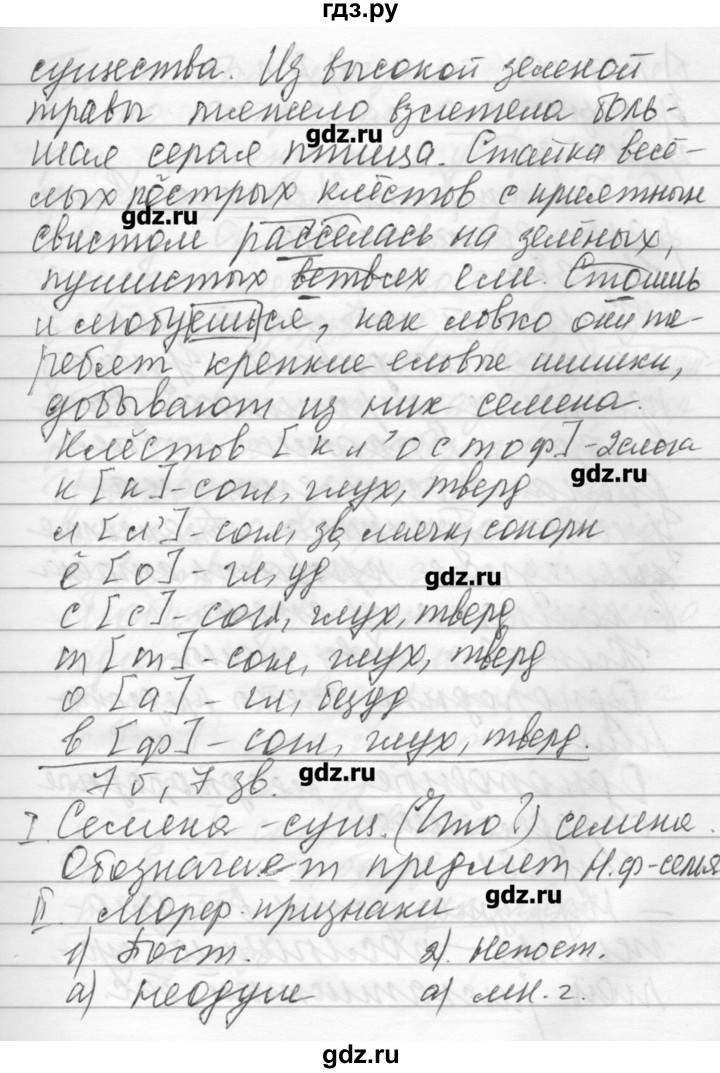 гдз.ру
существа. Из высокой зеленой
травы тяжело взлетела боль-
gdz.ru
шая серая птица. Стайка весё-
лых пёстрых клёстов с приятным
gdz.ru
свистом расселась на зелёных,
пушистых ветвях ели. Стоишь
и любуешься, как ловко они те-
ребят крепкие еловые шишки,
добывают из них семена.
Клёстов [кл'остоф]-2слога
gdz.ru
к [к]-согл, глух, тверд
л [л']-сог, зв, мягк, сонорн
ё [о]-гл, уд
gdz.ru
с [с]-согл, глух, тверд
т [т]-согл, глух, тверд
о [а]-гл, безуд
в [ф]-согл, глух, тверд.
7б, 7зв.
gdz.ru
I. Семена-сущ. (Что?) семена.
Обозначает предмет Н.ф-семя
gdz.ru
II. Морф. признаки
1) Пост. 2). Непост.
а) неодуш а) мн. г.
gdz.ru